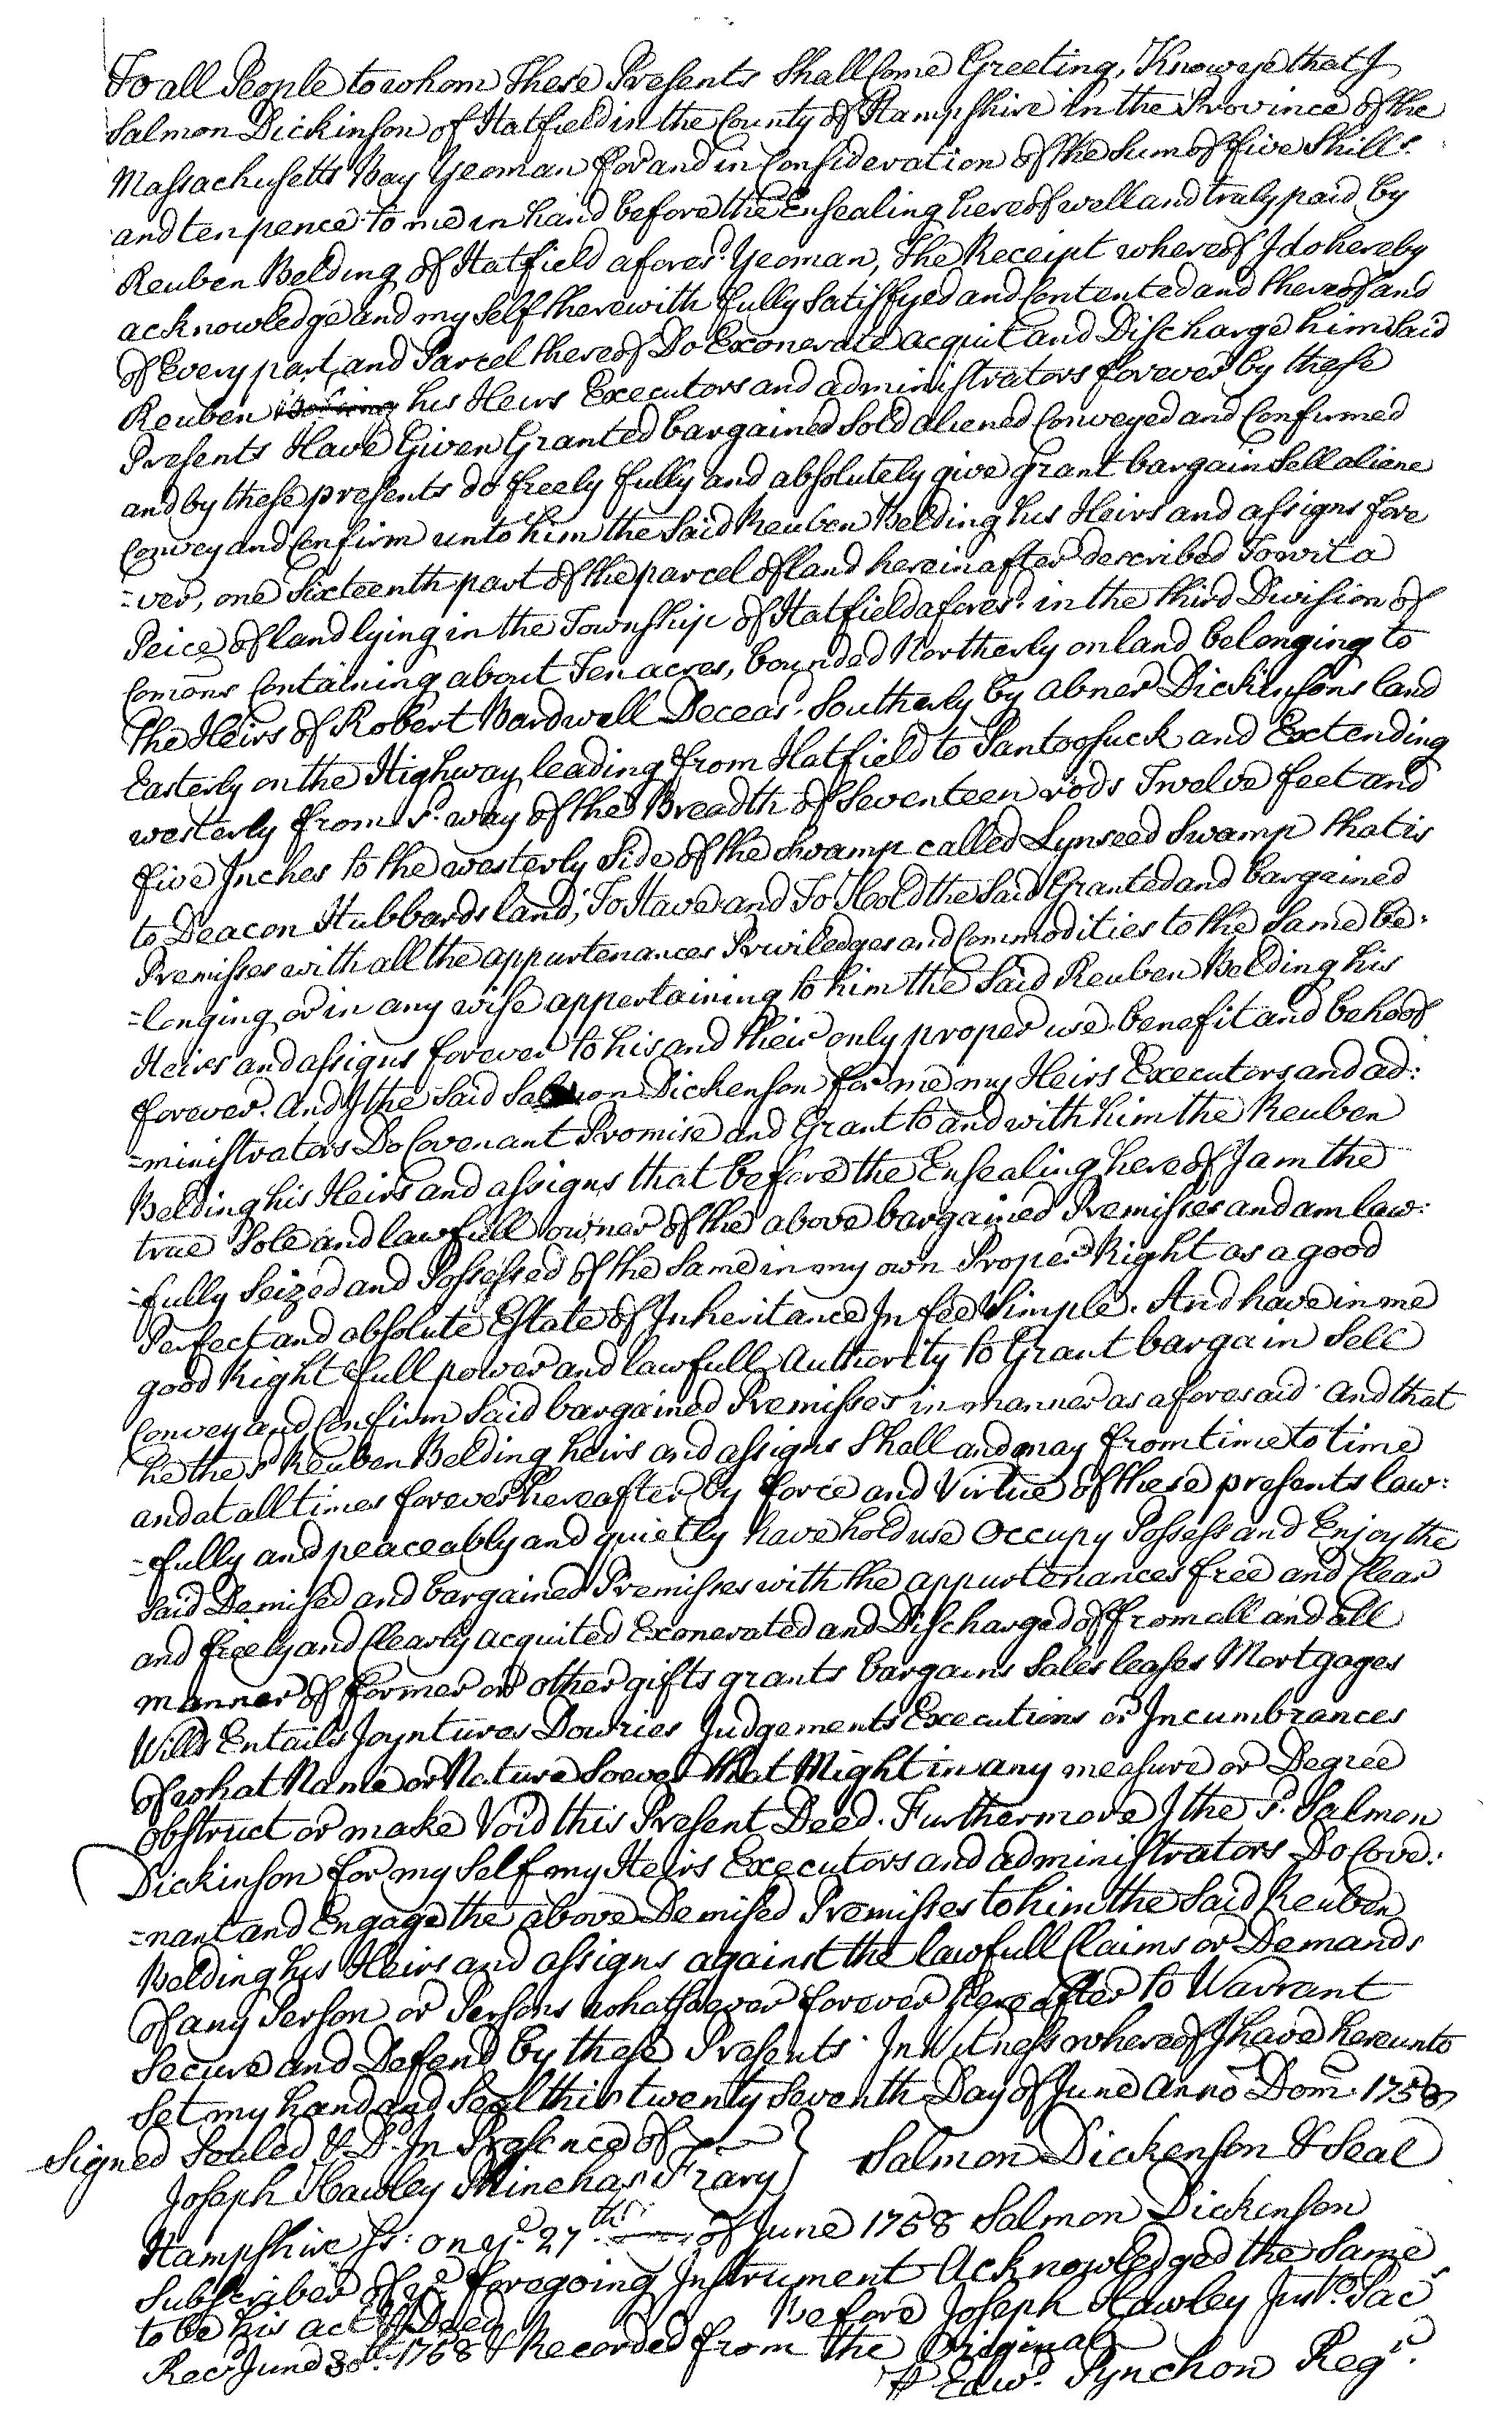 To all People to whom These Presents Shall Come Greeting, Know ye that I
Salmon Dickinson of Hatfield in the County of Hampshire in the Province of the
Massachusetts Bay Yeoman for and in Consideration of the Sum of five Shills.
and ten pence to me in hand before the Ensealing hereof well and truly paid by
Reuben Belding of Hatfield afores.d Yeoman, The Receipt whereof I do hereby
acknowledge and my Self therewith fully Satisfyed and Contented and thereof and
of Every part and Parcel thereof Do Exonerate acquit and Discharge him Said
Reuben his Heirs Executors and administrators forever by these
Presents Have Given Granted bargained Sold aliened Conveyed and Confirmed
and by these presents do freely fully and absolutely give grant bargain Sell aliene
Convey and Confirm unto him the Said Reuben Belding his Heirs and assigns fore
=ver, one Sixteenth part of the parcel of land hereinafter described To wit a
Peice of land lying in the Township of Hatfield afores.d in the third Division of
Comons Containing about Ten acres, bounded Northerly on land belonging to
The Heirs of Robert Bardwell Deceas.d Southerly by Abner Dickinsons land
Easterly on the Highway leading from Hatfield to Pantoosuck and Extending
westerly from s.d way of the Breadth of Seventeen rods Twelve feet and
five Inches to the westerly Side of the Swamp called Lynseed Swamp that is
to Deacon Hubbards land; To Have and To Hold the Said Granted and bargained
Premisses with all the appurtenances Priviledges and Commodities to the Same be:
=longing or in any wise appertaining to him the Said Reuben Belding his
Heirs and assigns forever to his and their only proper use benefit and behoof
forever. And I the Said Salmon Dickenson for me my Heirs Executors and ad:
=ministrators Do Covenant Promise and Grant to and with him the Reuben
Belding his Heirs and assigns that before the Ensealing hereof I am the
true Sole and lawfull owner of the above bargained Premisses and am law:
=fully Seized and Possessed of the Same in my own Proper Right as a good
Perfect and absolute Estate of Inheritance In fee Simple. And have in me
good Right full power and lawfull Authority to Grant bargain Sell
Convey and Confirm Said bargained Premisses in manner as aforesaid. And that
he the s.d Reuben Belding heirs and assigns Shall and may from time to time
and at all times forever hereafter by force and Virtue of these presents law:
=fully and peaceably and quietly have hold use Occupy Possess and Enjoy the
Said Demised and bargained Premisses with the appurtenances free and Clear
and freely and Clearly acquited Exonerated and Discharged of from all and all
manner of former or other gifts grants bargains Sales leases Mortgages
Wills Entails Joyntures Dowries Judgements Executions or Incumbrances
of what Name or Nature Soever that Might in any measure or Degree
obstruct or make Void this Present Deed. Furthermore I the s.d Salmon
Dickinson for my Self my Heirs Executors and administrators Do Cove:
=nant and Engage the above Demised Premisses to him the Said Reuben
Belding his Heirs and assigns against the lawfull Claims or Demands
of any Person or Persons whatsoever forever Hereafter to Warrant
Secure and Defend by these Presents. In Witness whereof I have hereunto
Set my hand and Seal this twenty Seventh Day of June Anno Dom. 1758
Signed Sealed & D.d In Presence of } Salmon Dickenson & Seal
Joseph Hawley Phinehas Frary
Hampshire Ss: on y.e 27th of June 1758 Salmon Dickinson
Subscriber of y.e foregoing Instrument Acknowledged the Same
to be his act & Deed Before Joseph Hawley Just.e Pac
Rec.d June 30th 1758 & Recorded from the Original
P Edw.d Pynchon Reg.r